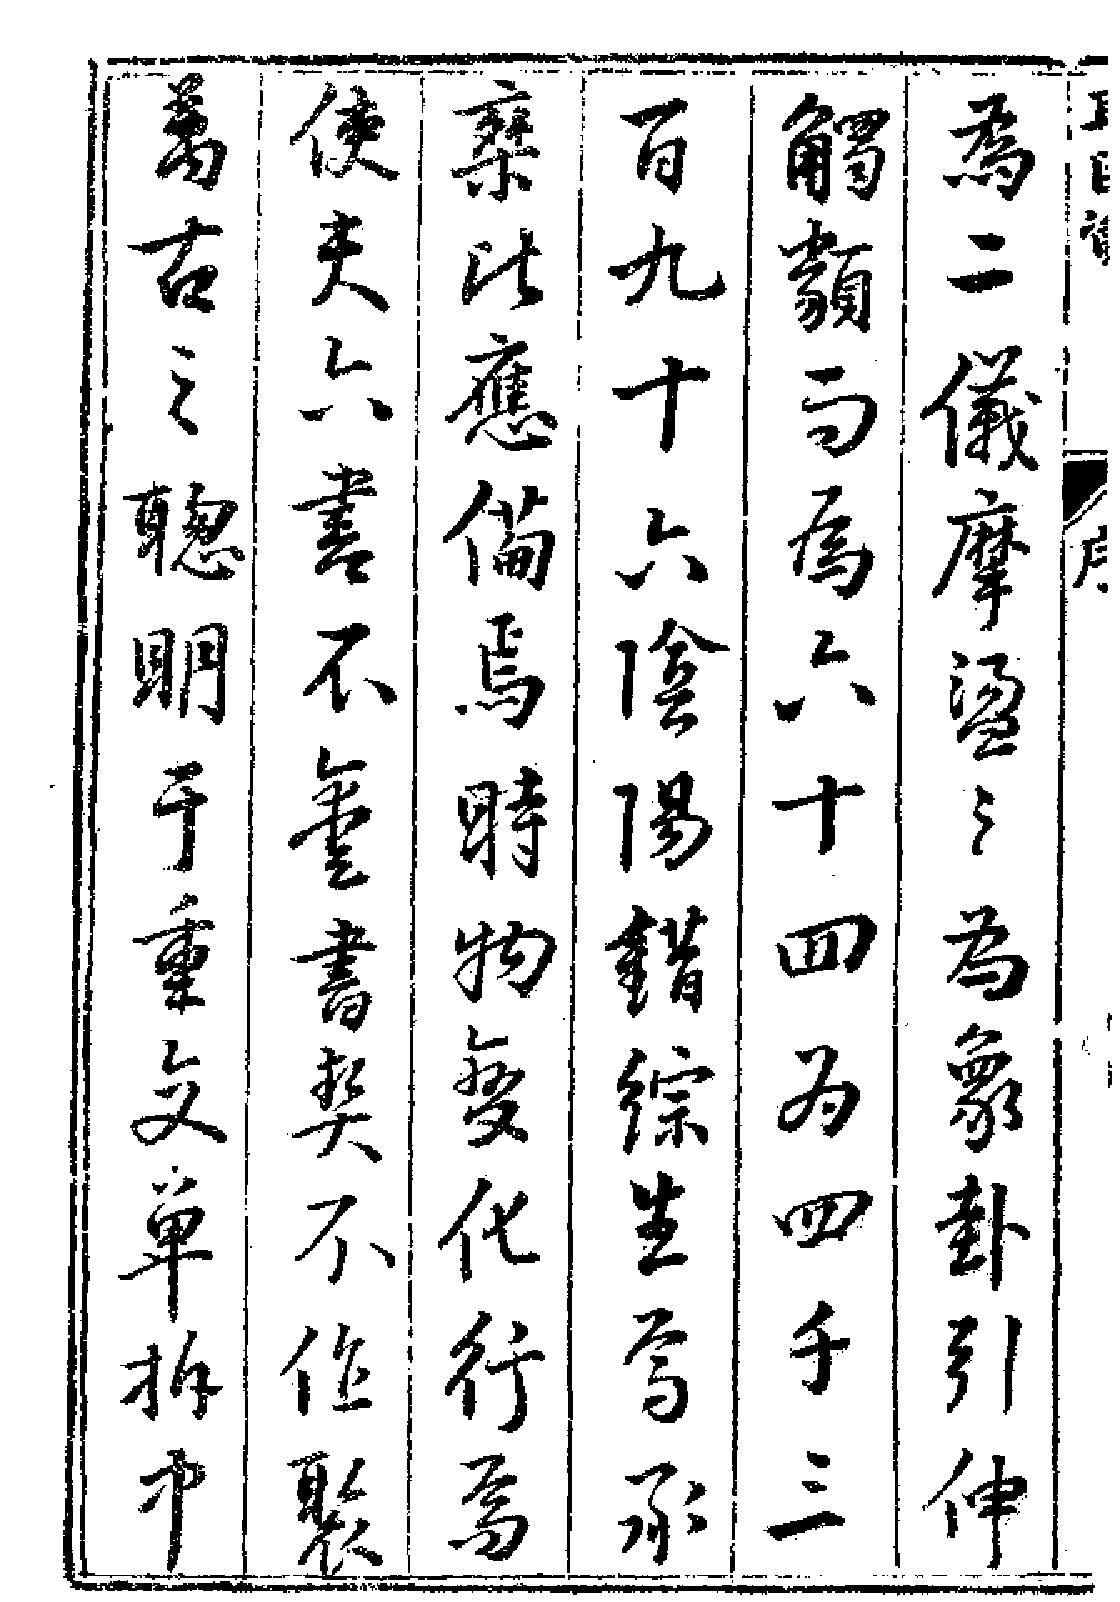 序
為二儀摩盪〻為象卦引伸
觸類而為六十四为四千三
百九十六陰陽錯綜生焉承
乘比應備焉時物變化行焉
使夫六畫不書契不作聚
萬古之聰明于重交單拆中